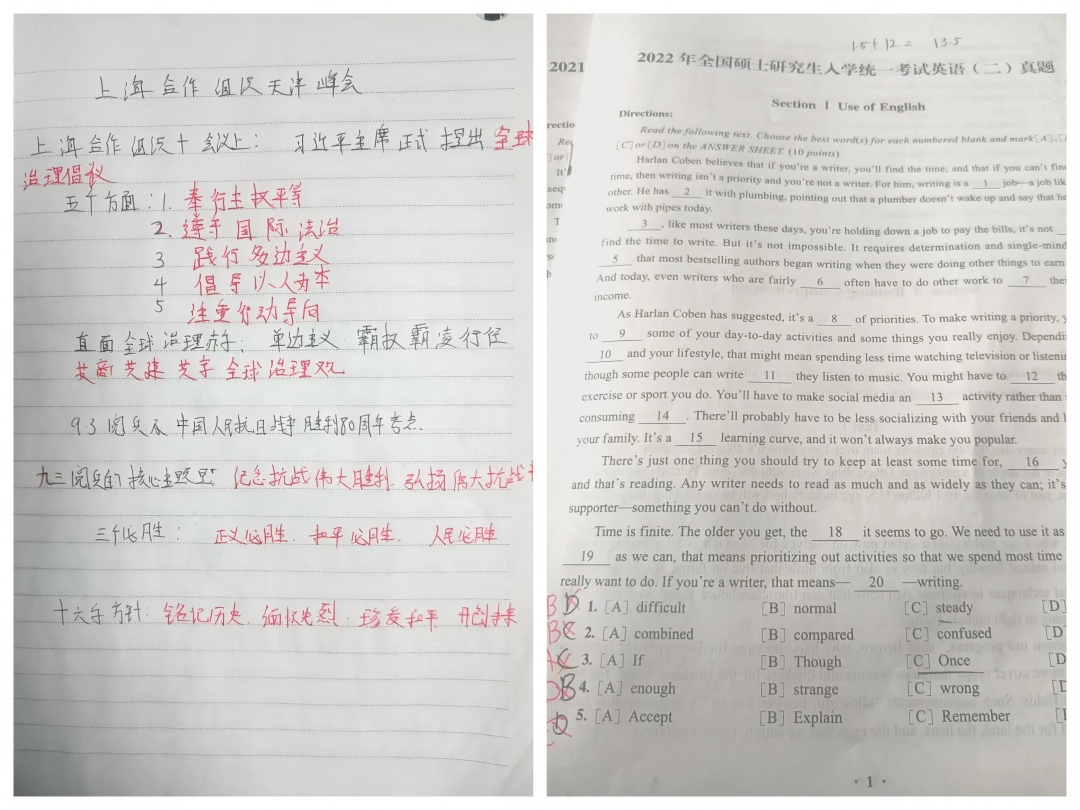 上海合作组织天津峰会
上海合作组织十会议上： 习近平主席正式提出全球
治理倡议
五个方面：1. 奉行主权平等
2、遵守国际法治
3 践行多边主义
4 倡导以人为本
5 注重行动导向
直面全球治理赤字： 单边主义 霸权霸凌行径
共商共建共享全球治理观
9.3阅兵及中国人民抗日战争胜利80周年考点.
九三阅兵的核心主题是: 纪念抗战伟大胜利. 弘扬伟大抗战
三个必胜： 正义必胜. 和平必胜. 人民必胜
十六字方针: 铭记历史 缅怀先烈. 珍爱和平 开创未来
1.5+12= 13.5
2021
2022年全国硕士研究生入学统一考试英语（二）真题
Section I Use of English
Directions:
Read the following text. Choose the best word(s) for each numbered blank and mark[A],
[C]or[D]on the ANSWER SHEET. (10 points)
Harlan Coben believes that if you're a writer, you'll find the time; and that if you can't fin
time, then writing isn't a priority and you're not a writer. For him, writing is a 1 job—a job lik
other. He has 2 it with plumbing, pointing out that a plumber doesn't wake up and say that he
work with pipes today.
3 , like most writers these days, you're holding down a job to pay the bills, it's not
find the time to write. But it's not impossible. It requires determination and single-mind
5 that most bestselling authors began writing when they were doing other things to earn
And today, even writers who are fairly 6 often have to do other work to 7 the
income.
As Harlan Coben has suggested, it's a 8 of priorities. To make writing a priority, y
to 9 some of your day-to-day activities and some things you really enjoy. Dependi
10 and your lifestyle, that might mean spending less time watching television or listeni
though some people can write 11 they listen to music. You might have to 12 th
exercise or sport you do. You'll have to make social media an 13 activity rather than
consuming 14 . There'll probably have to be less socializing with your friends and l
your family. It's a 15 learning curve, and it won't always make you popular.
There's just one thing you should try to keep at least some time for, 16 y
and that's reading. Any writer needs to read as much and as widely as they can; it's
supporter—something you can't do without.
Time is finite. The older you get, the 18 it seems to go. We need to use it as
19 as we can, that means prioritizing out activities so that we spend most time
really want to do. If you're a writer, that means— 20 —writing.
B D 1. [A] difficult [B] normal [C] steady [D]
B C 2. [A] combined [B] compared [C] confused [D
A C 3. [A] If [B] Though [C] Once [D
D B 4. [A] enough [B] strange [C] wrong [D
D 5. [A] Accept [B] Explain [C] Remember [
· 1 ·